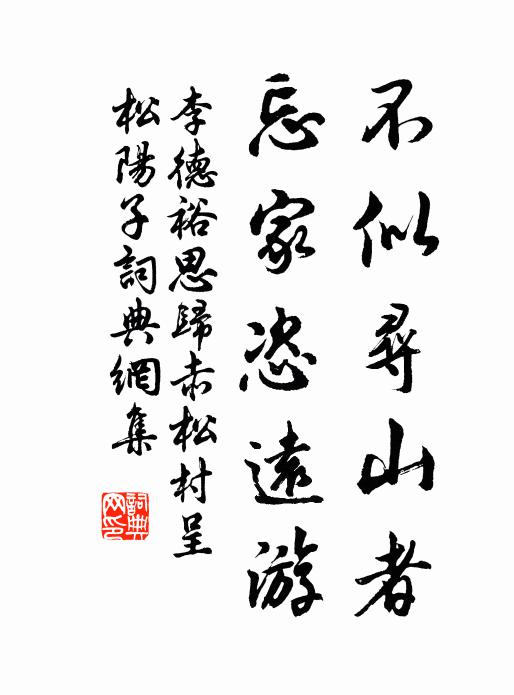 不似尋山者
忘家恣遠游
李德裕思歸赤松村呈
松陽子詞典網集
詞典
网印